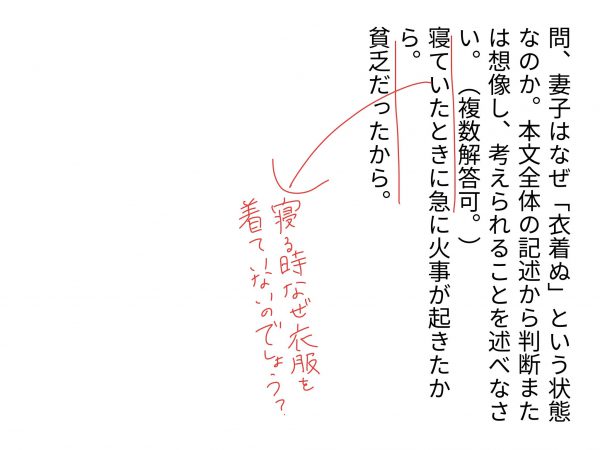 問、妻子はなぜ「衣着ぬ」という状態
なのか。本文全体の記述から判断また
は想像し、考えられることを述べなさ
い。（複数解答可。）
寝ていたときに急に火事が起きたか
ら。
貧乏だったから。
寝る時なぜ衣服を
着ていないのでしょう？